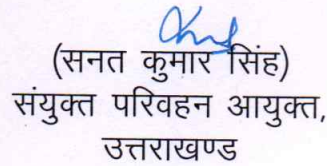 (सनत कुमार सिंह)
संयुक्त परिवहन आयुक्त,
उत्तराखण्ड